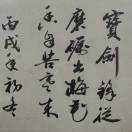 寶劍鋒從
磨礪出梅花
香自苦寒來
丙戌年初冬